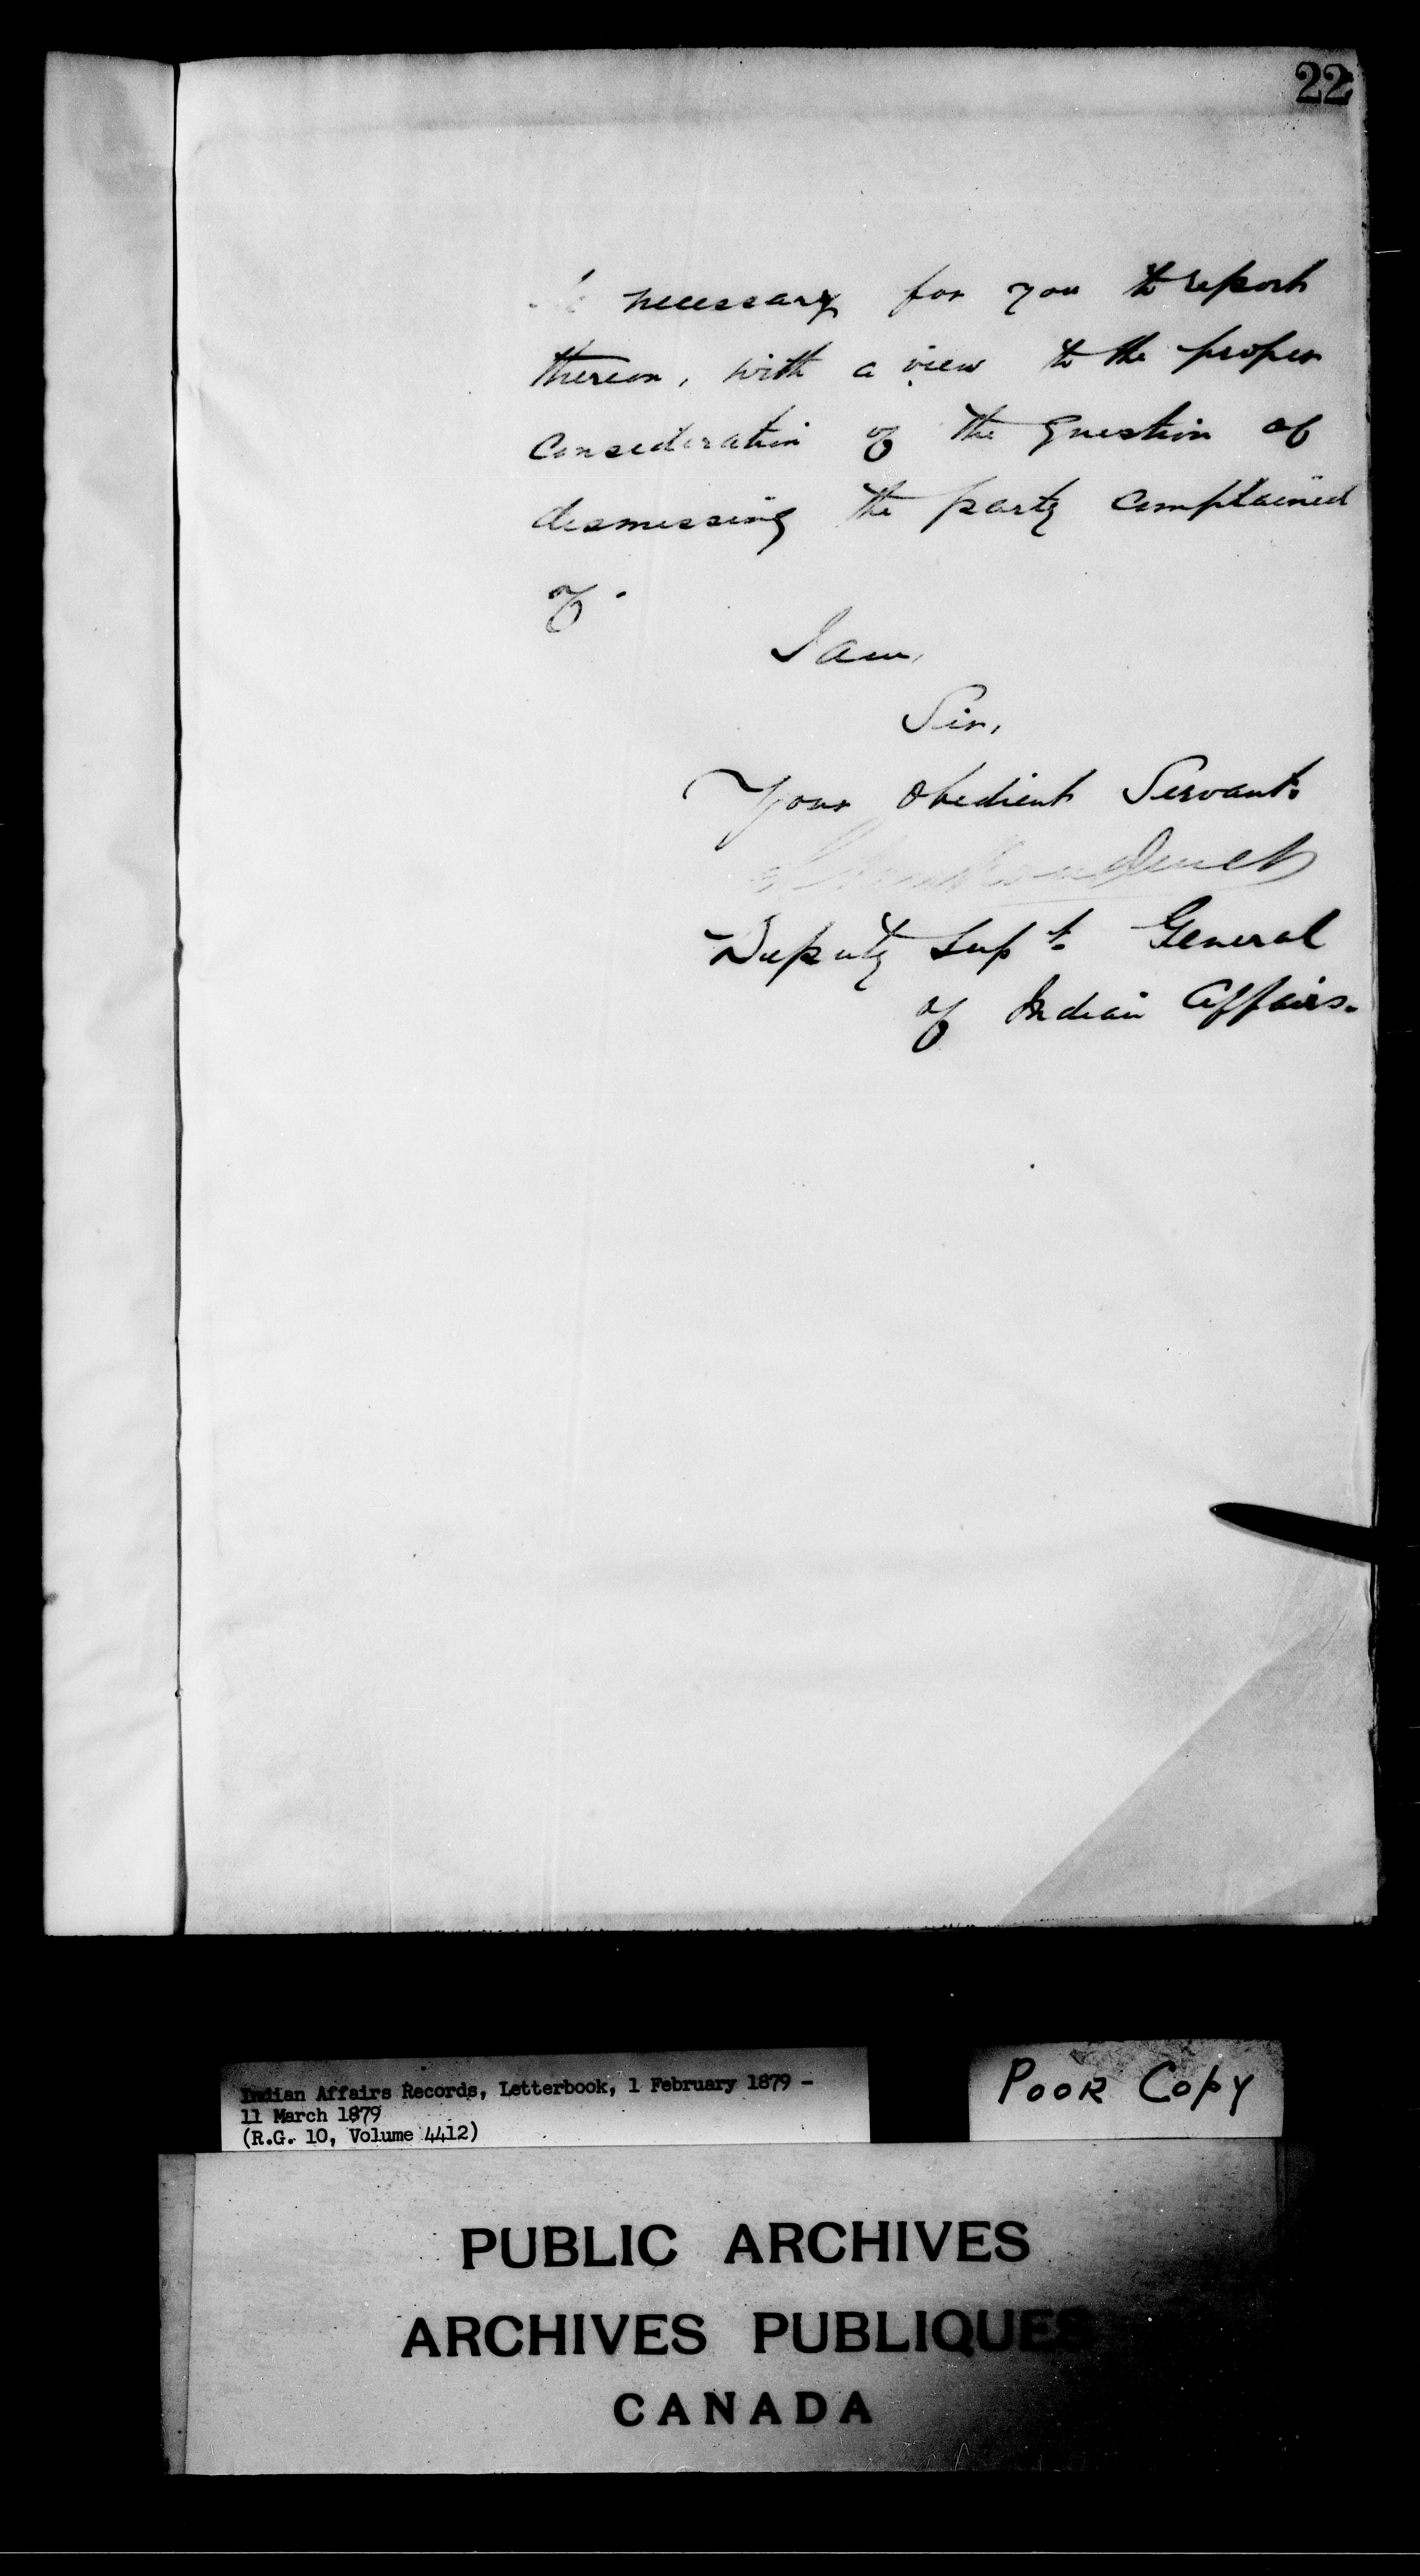 22
necessary for you to report
thereon, with a view to the proper
consideration of the question of
dismissing the party complained
of.
I am,
Sir,
Your obedient Servant.
Deputy Supt. General
of Indian Affairs.
Indian Affairs Records, Letterbook, 1 February 1879 -
11 March 1879
(R.G. 10, Volume 4412)
POOR COPY
PUBLIC ARCHIVES
ARCHIVES PUBLIQUES
CANADA